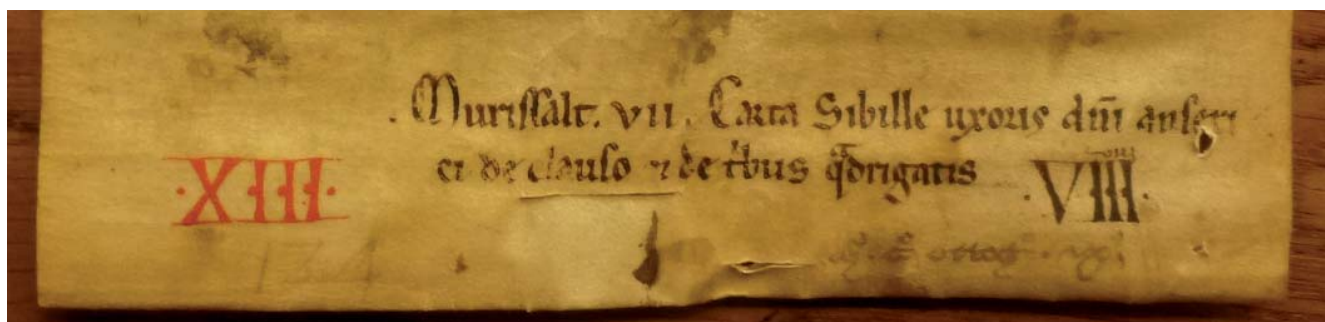 . Murissalt. VII. Carta Sibille uxoris dñi anseri
ci de clauso ⁊ de tbus qdrigatis
·XIII·
·VIII·